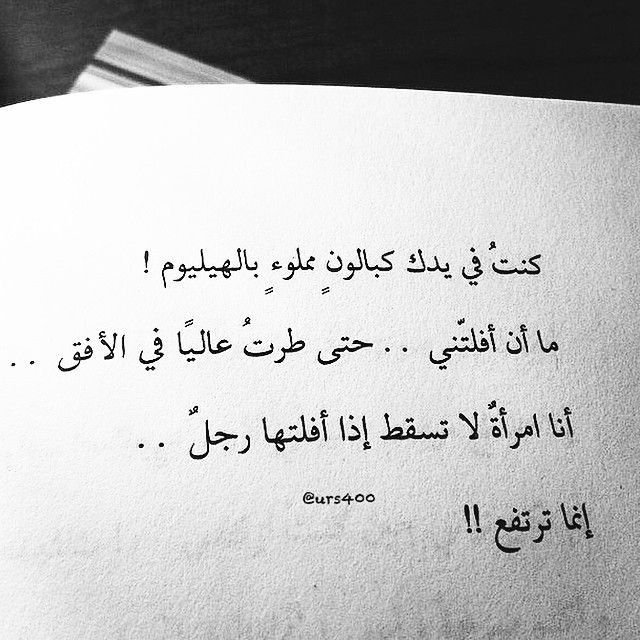 كنتُ في يدك كبالونٍ مملوءٍ بالهيليوم !
ما أن أفلتّني . . حتى طرتُ عاليًا في الأفق . .
أنا امرأةٌ لا تسقط إذا أفلتها رجلٌ . .
@urs400
إنما ترتفع !!